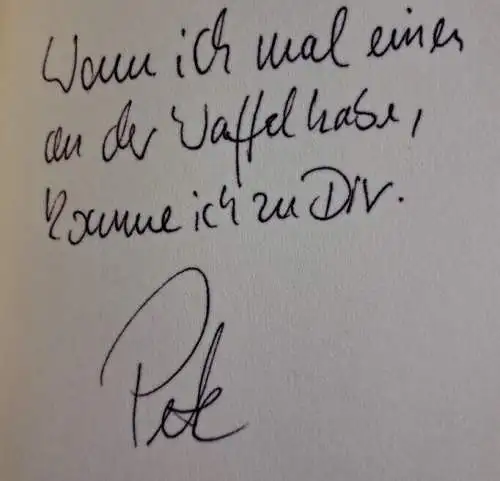 Wenn ich mal einen
an der Waffel habe,
komme ich zu Dir.
Pete